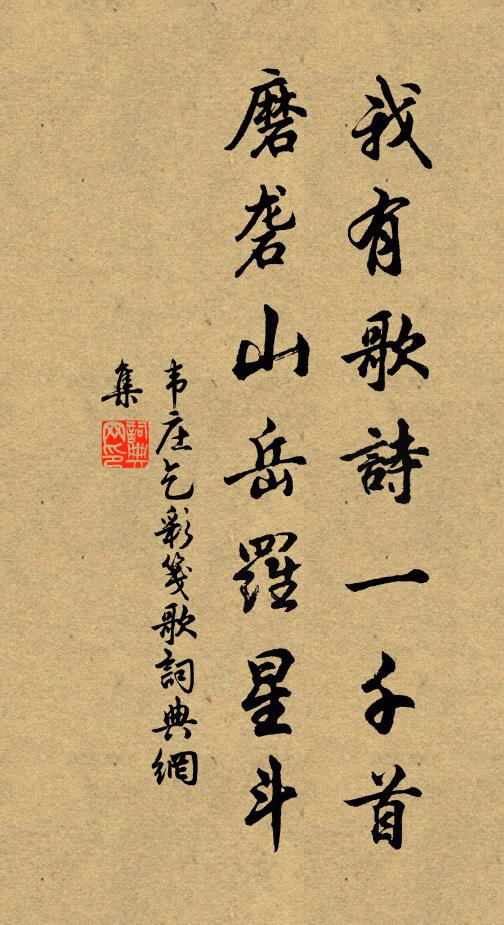 我有歌詩一千首
磨砻山岳羅星斗
韦庄乞彩箋歌詞典網
集
詞典網印